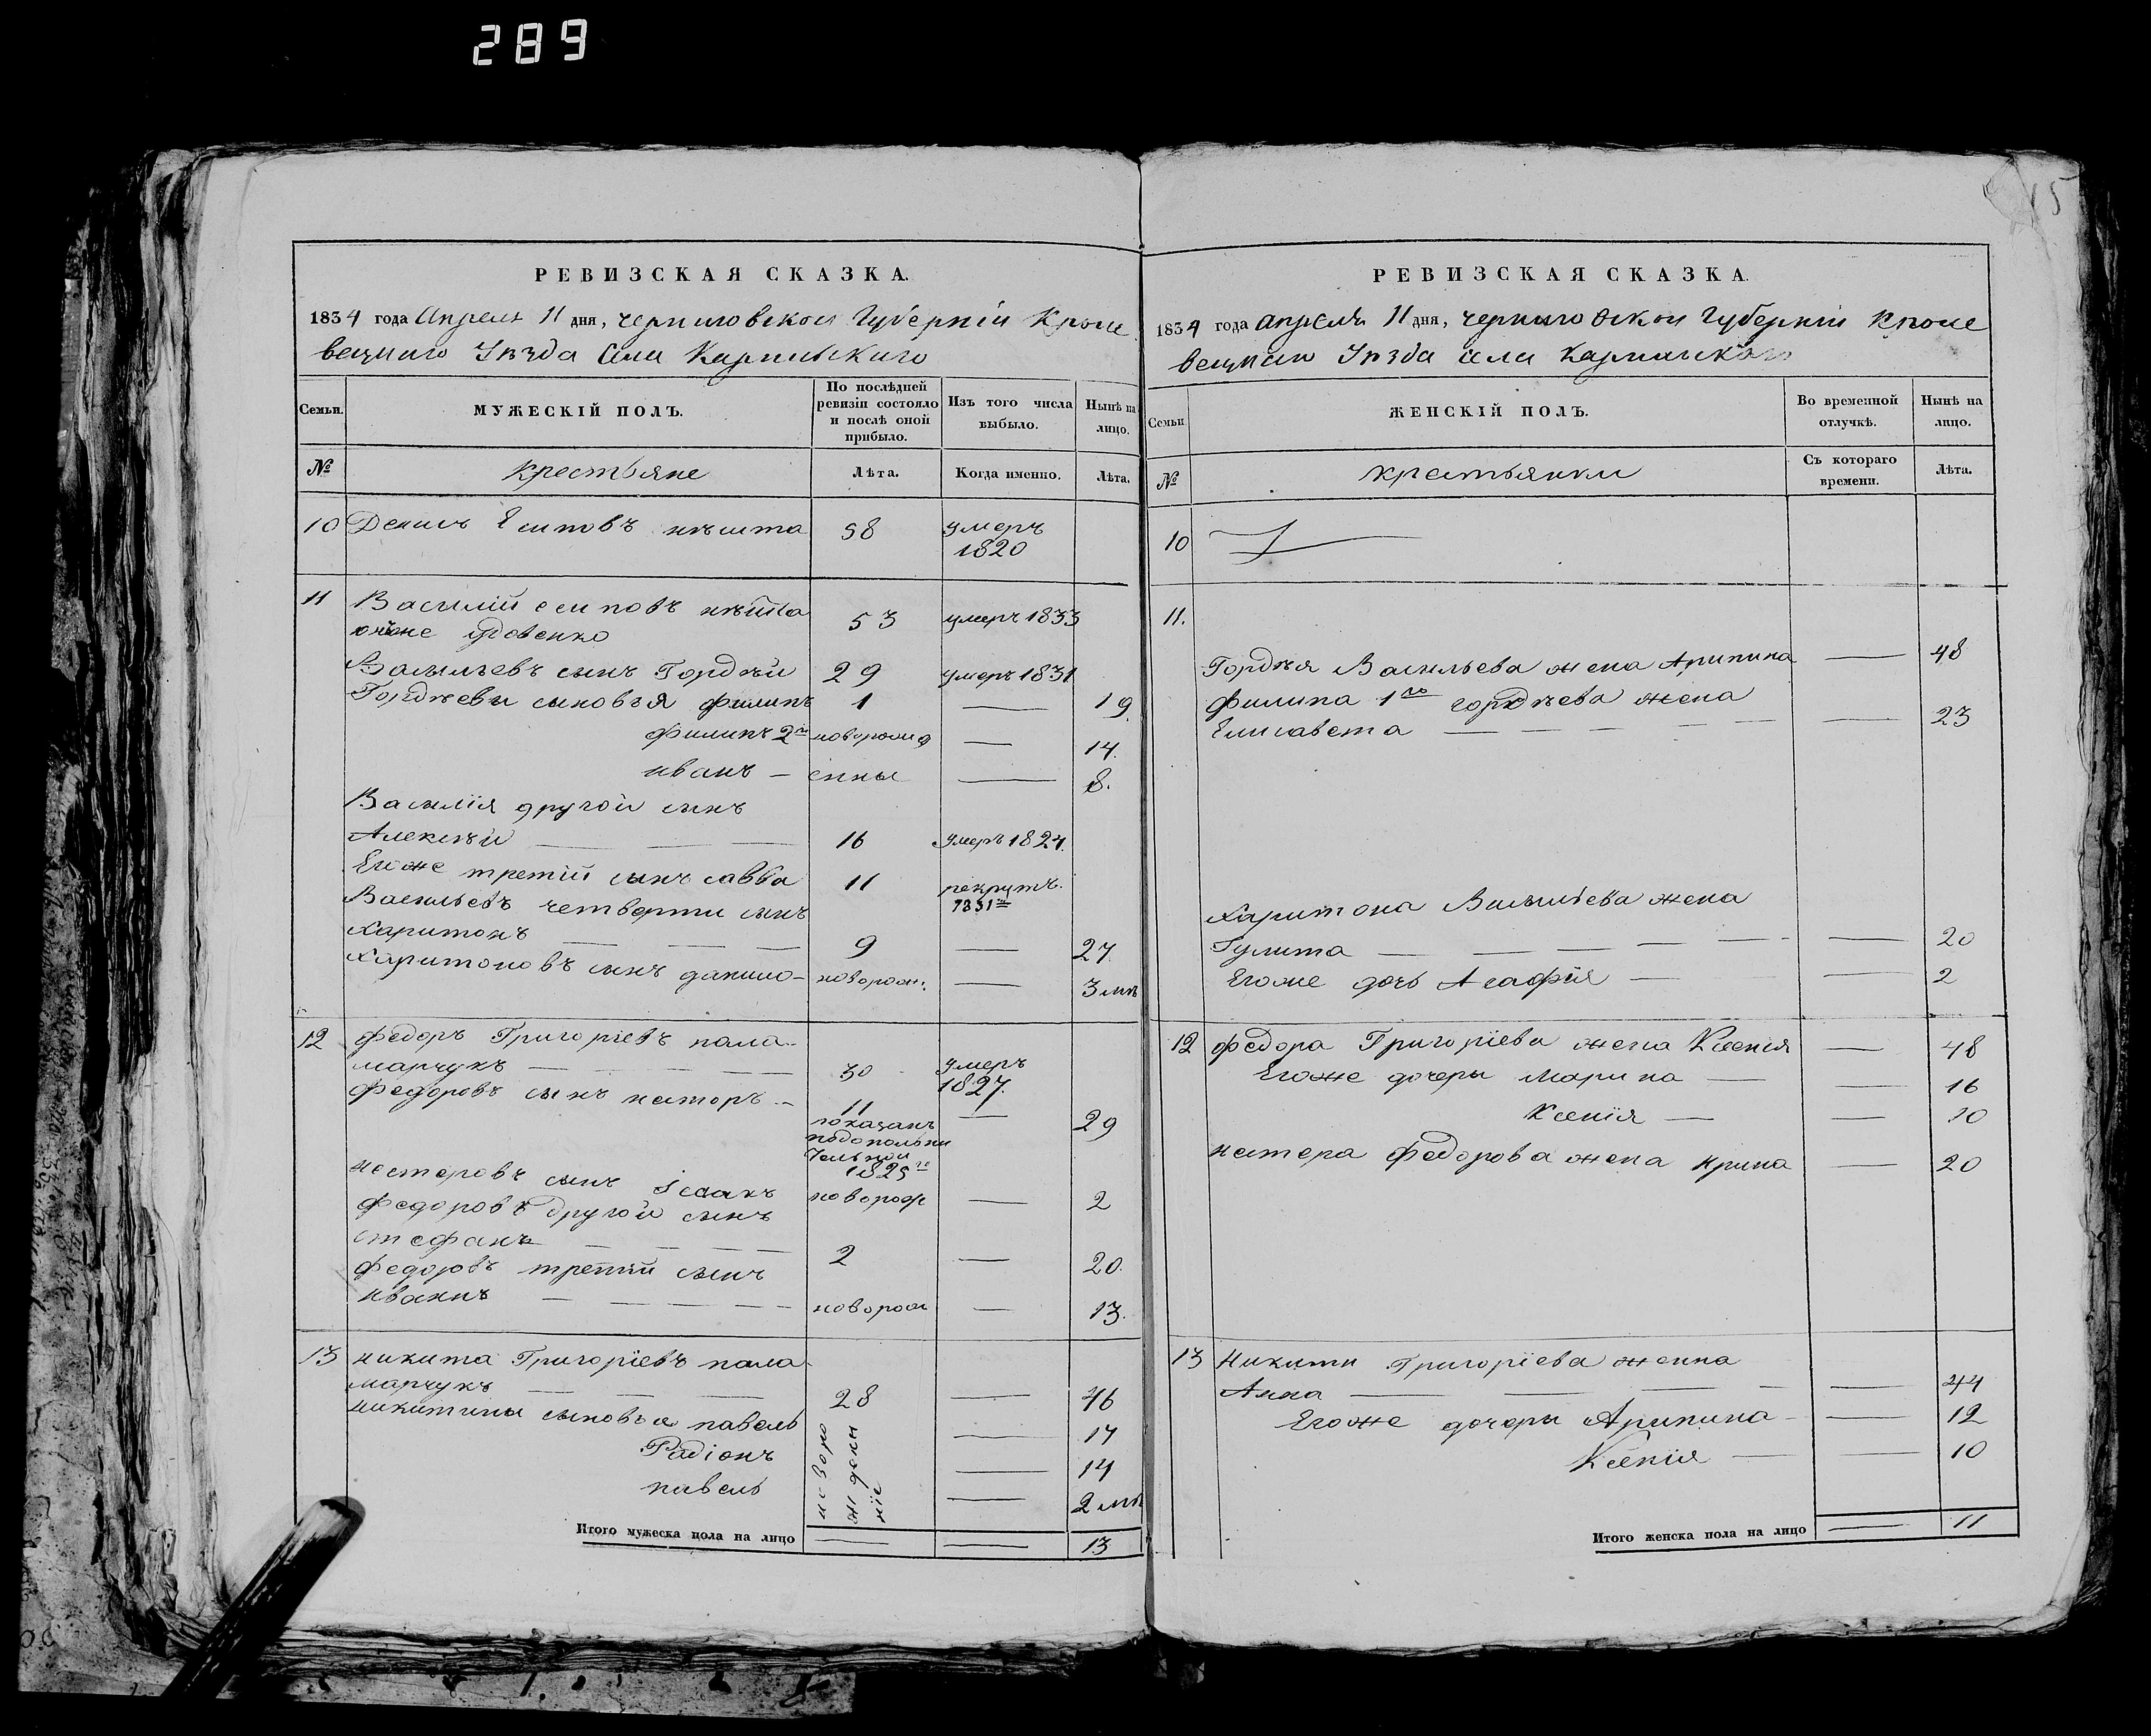 289
15
РЕВИЗСКАЯ СКАЗКА.
1834 года Апреля 11 дня, черниговской Губерніи Кроле
вецкого Уѣзда Села Карпильского
Семьи. МУЖЕСКІЙ ПОЛЪ. По послѣдней ревизіи состояло и послѣ оной прибыло. Изъ того числа выбыло. Нынѣ на лицо.
№ Крестьяне Лѣта. Когда именно. Лѣта.
10 Денисъ Есиповъ 58 умеръ
1820
11 Василій есиповъ
онъже удовенко 53 умеръ 1833
Васильевъ сынъ Гордѣй 29 умеръ 1831
Гордѣевы сыновья филипъ 1 — 19.
филипъ 2й новорожд — 14.
иванъ — енны — 8.
Василія другой сынъ
Алексѣй — — — 16 умеръ 1824.
Егоже третій сынъ савва 11 рекрутъ.
1831го
Васильевъ четверти сынъ
харитонъ — — — 9 — 27.
харитоновъ сынъ данило — новорож. — 3 мѣ
12 федоръ Григоріевъ пала-
марчукъ — — — — 30 умеръ
1827.
федоровъ сынъ несторъ — 11 — 29
показанъ
подополни
тельной
1825го
нестеровъ сынъ Ісаакъ новорож — 2
федоровъ другой сынъ
стефанъ — — — 2 — 20.
федоровъ третій сынъ
иванъ — — — — — новорож — 13.
13 никита Григоріевъ пала-
марчукъ — — — 28 — 46
никитины сыновья павелъ — 17
Радіонъ — 14
павелъ — 2 мѣ
новоро
жденн
Итого мужеска пола на лицо — — 13
РЕВИЗСКАЯ СКАЗКА.
1834 года апреля 11 дня, черниговской Губерніи Кроле
вецкого Уѣзда села Карпильского
Семьи ЖЕНСКІЙ ПОЛЪ. Во временной отлучкѣ. Нынѣ на лицо.
№ крестьянки Съ котораго времени. Лѣта.
10
11.
Гордѣя Васильева жена Арипина — 48
филипа 1го гордѣева жена
Елисавета — — — — — — 23
Харитона Васильева жена
Гулита — — — — — — 20
Егоже дочь Агафія — — 2
12 федора Григоріева жена Ксенія — 48
Егоже дочеры Марина — — 16
Ксенія — — 10
нестера федорова жена ирина — 20
13 Никиты Григоріева женна
Анна — — — — — 44
Егоже дочеры Арипина — — 12
Ксенія — — 10
Итого женска пола на лицо — 11